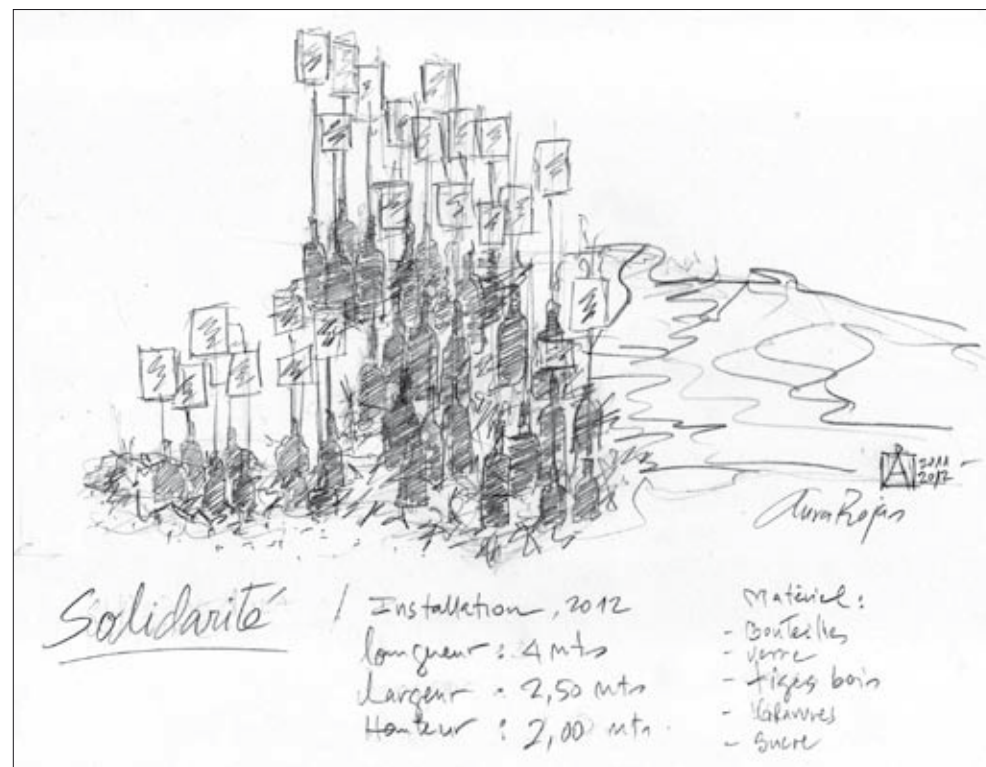 2011
2012
Aura Rojas
Solidarité / Installation, 2012
longueur : 4 mts
Largeur : 2,50 mts
Hauteur : 2,00 mts.
Matériel :
- Bouteilles
- verre
- tiges bois
- Gravures
- Sucre